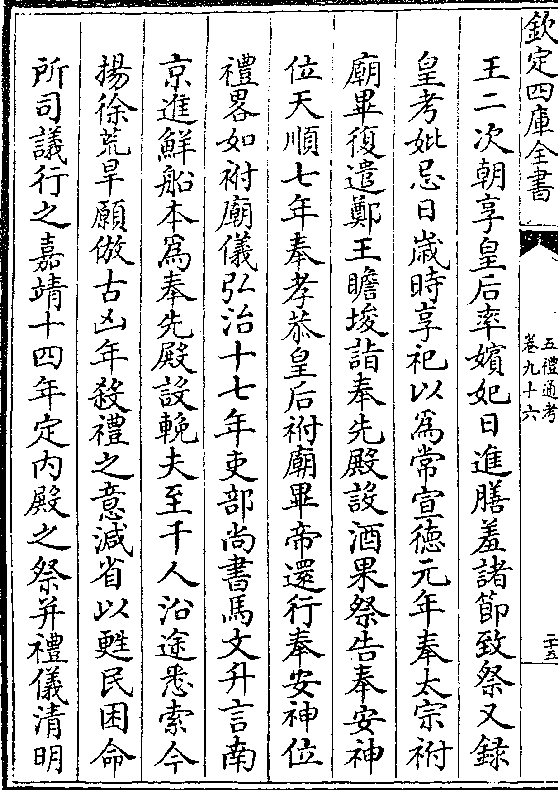 欽定四庫全書
五禮通考
卷九十六
二十五
王二次朝享皇后率嬪妃日進膳羞諸節致祭又錄
皇考妣忌日歲時享祀以為常宣德元年奉太宗祔
廟畢復遣鄭王瞻埈詣奉先殿設酒果祭告奉安神
位天順七年奉孝恭皇后祔廟畢帝還行奉安神位
禮畧如祔廟儀弘治十七年吏部尚書馬文升言南
京進鮮船本為奉先殿設輓夫至千人沿途悉索今
揚徐荒旱願倣古凶年殺禮之意減省以甦民困命
所司議行之嘉靖十四年定内殿之祭并禮儀清明